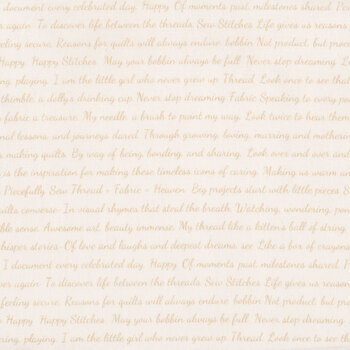 I document every celebrated day. Happy. Of moments past, milestones shared. Pe
er again. To discover life between the threads. Sew Stitches. Life gives us reason
feeling secure. Reasons for quilts will always endure. bobbin Not product, but proc
Happy. Happy Stitches. May your bobbin always be full. Never stop dreaming. L
ing, playing. I am the little girl who never grew up. Thread. Look once to see that
thimble, a dolly's drinking cup. Never stop dreaming Fabric Speaking to every po
fabric a treasure. My needle, a brush to paint my way. Look twice to hear them
nal lessons, and journeys dared. Through growing, loving, marring and motherin
making quilts. By way of being, bonding, and sharing. Look over and over and
is the inspiration for making these timeless icons of caring. Making us warm an
Piecefully Sew Thread + Fabric = Heaven. Big projects start with little pieces S
uilts converse- In visual rhymes that steal the breath. Watching, wondering, pon
ble sense. Awesome art, beauty immense. My thread like a kitten's ball of string,
hisper stories- Of love and laughs and deepest dreams see. Like a box of crayons
I document every celebrated day. Happy. Of moments past, milestones shared. P
er again. To discover life between the threads. Sew Stitches. Life gives us reason
feeling secure. Reasons for quilts will always endure. bobbin Not product, but pro
Happy. Happy Stitches. May your bobbin always be full. Never stop dreaming.
ing, playing. I am the little girl who never grew up. Thread. Look once to see tha